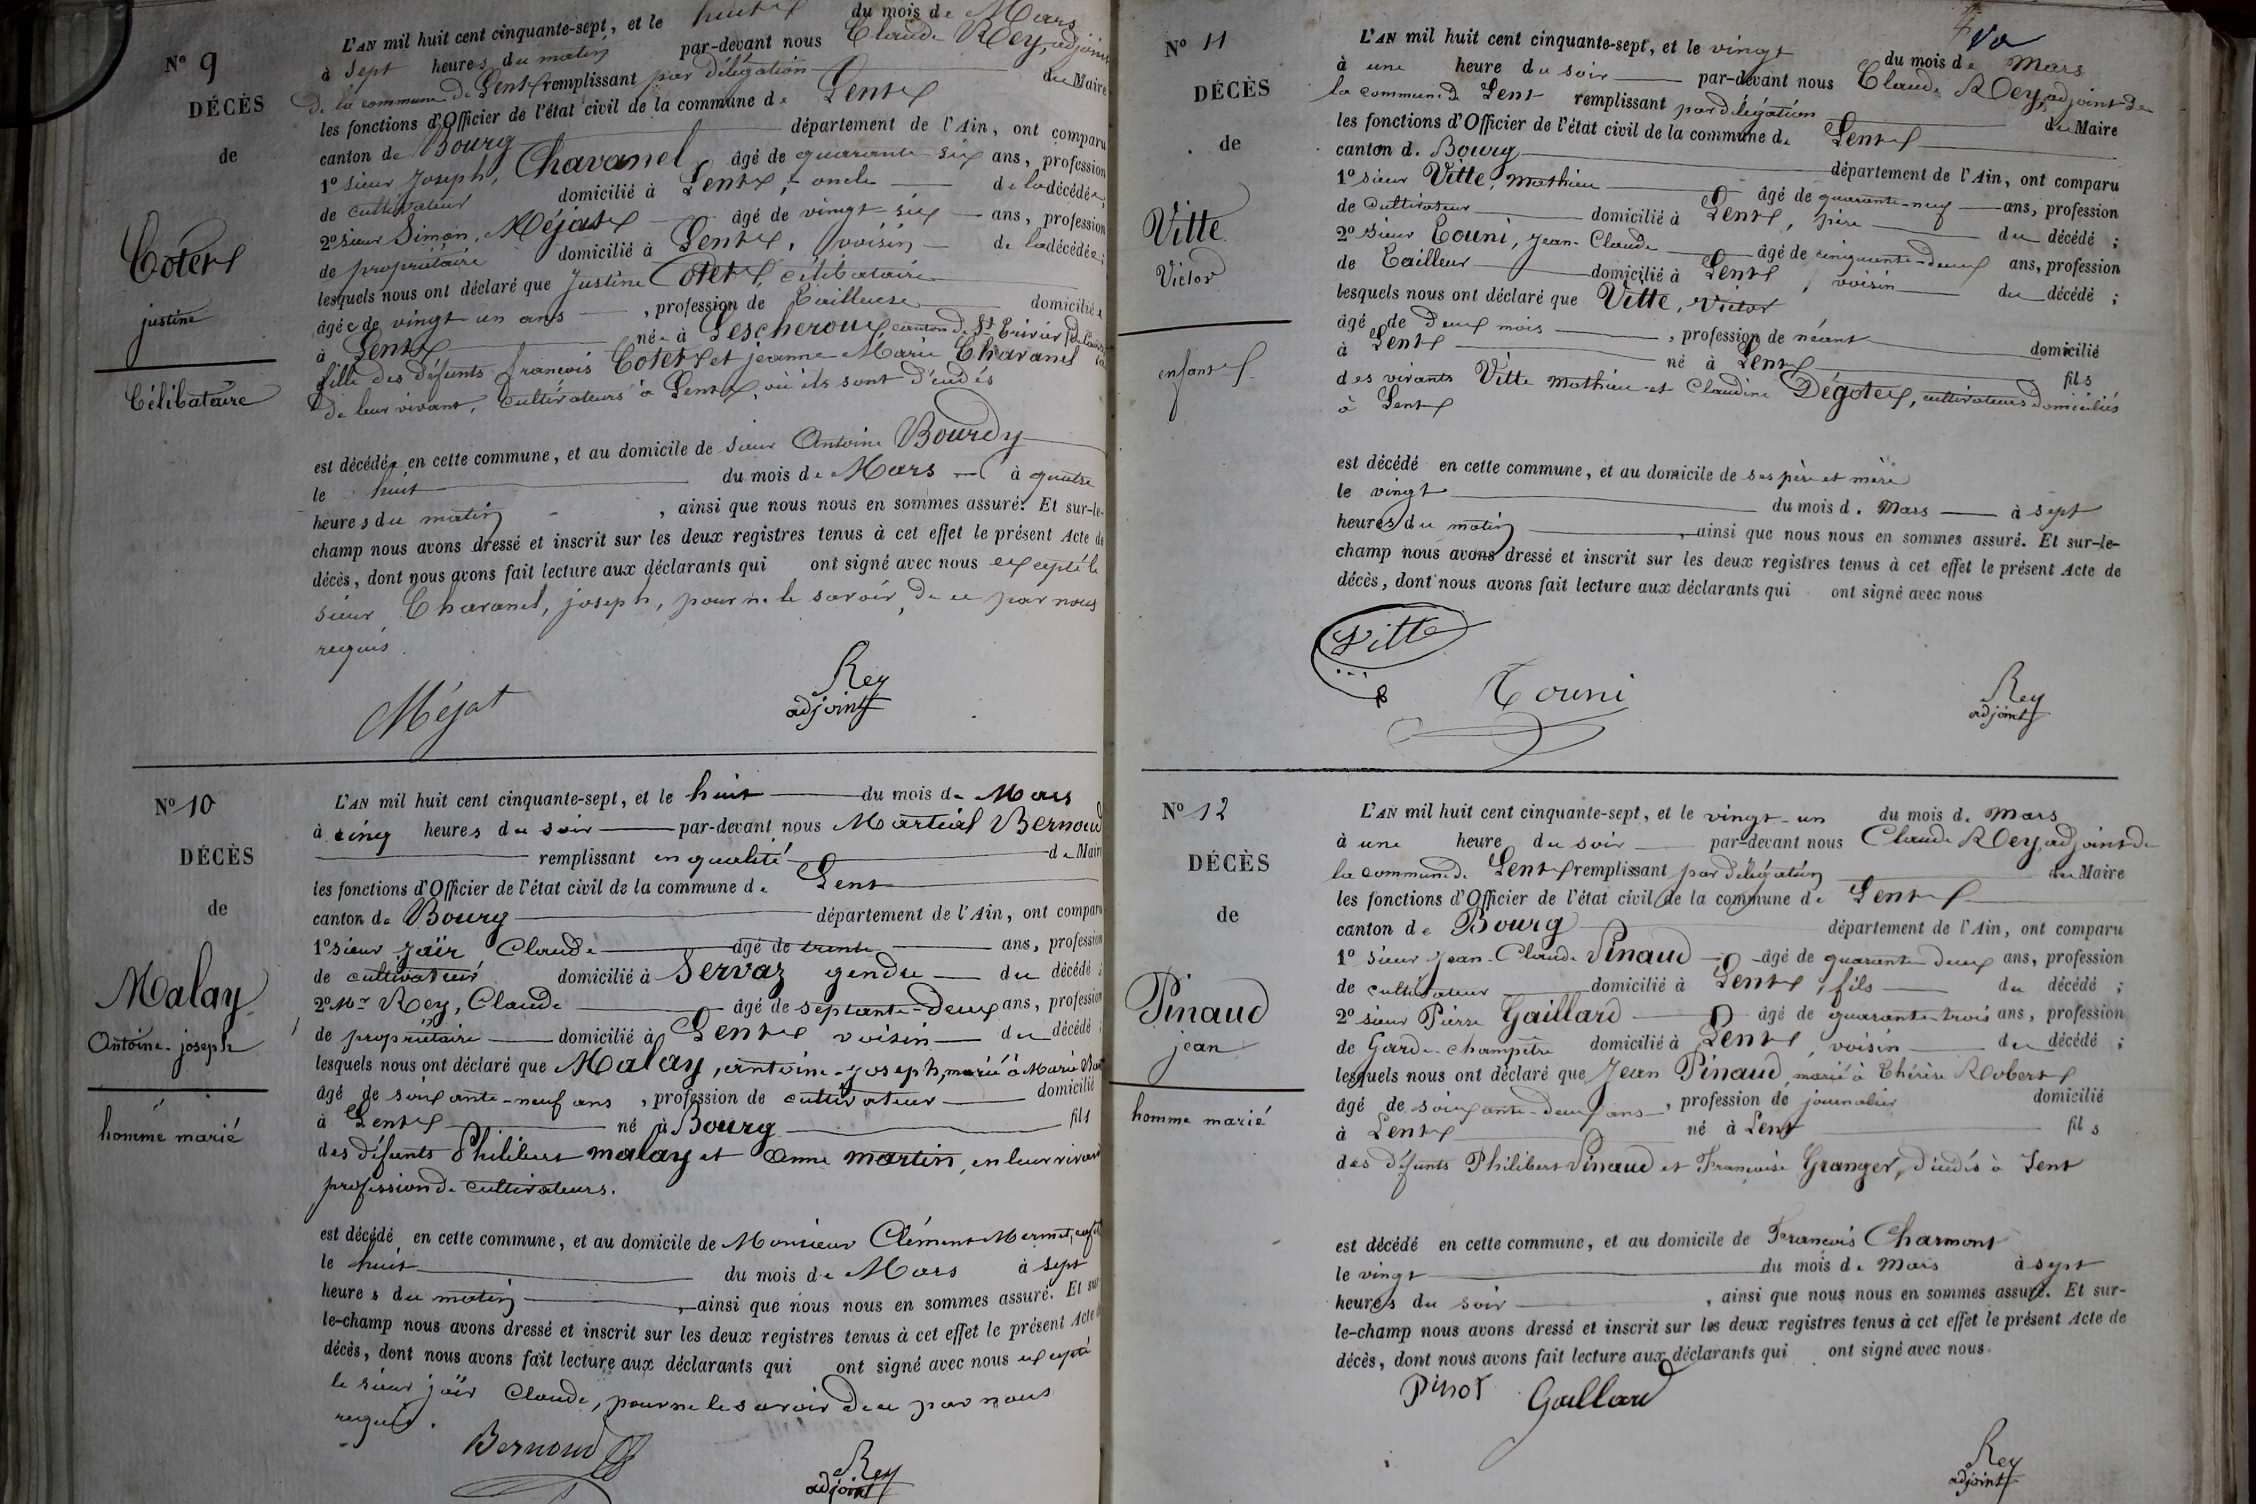 N° 9
DÉCÈS
de
Cotet
justine
Célibataire
L'AN mil huit cent cinquante-sept, et le huit du mois de Mars
à sept heures du matin par-devant nous Claude Rey, adjoint
de la commune de Lent remplissant par délégation du Maire
les fonctions d'Officier de l'état civil de la commune de Lent
canton de Bourg département de l'Ain, ont comparu
1° sieur Joseph, Chavanel, âgé de quarante-six ans, profession
de cultivateur domicilié à Lent, oncle de la décédée;
2° sieur Simon, Méjat âgé de vingt-six ans, profession
de propriétaire domicilié à Lent, voisin de la décédée;
lesquels nous ont déclaré que Justine Cotet, célibataire
âgée de vingt un ans, profession de Tailleuse domiciliée
à Lent née à Lescheroux, canton de St Trivier
fille des défunts françois Cotet et jeanne Marie Chavanel
de leur vivant, cultivateurs à Lent, où ils sont d'écdés
est décédée en cette commune, et au domicile de sieur Antoine Bourdy
le huit du mois de Mars à quatre
heures du matin, ainsi que nous nous en sommes assuré. Et sur-le-
champ nous avons dressé et inscrit sur les deux registres tenus à cet effet le présent Acte de
décès, dont nous avons fait lecture aux déclarants qui ont signé avec nous excepté le
sieur Chavanel, joseph, pour ne le savoir, de ce par nous
requis.
Méjat
Rey
adjoint
N° 10
DÉCÈS
de
Malay
Antoine-joseph
homme marié
L'AN mil huit cent cinquante-sept, et le huit du mois de Mars
à cinq heures du soir par-devant nous Martial Bernoud
remplissant en qualité de Maire
les fonctions d'Officier de l'état civil de la commune de Lent
canton de Bourg département de l'Ain, ont comparu
1° sieur Jaïr Claude âgé de trente ans, profession
de cultivateur domicilié à Servaz gendre du décédé;
2° Mr Rey, Claude âgé de septante-deux ans, profession
de propriétaire domicilié à Lent voisin du décédé;
lesquels nous ont déclaré que Malay, antoine-joseph, marié à Marie
âgé de soixante-neuf ans, profession de cultivateur domicilié
à Lent né à Bourg fils
des défunts Philibert malay et Anne martin, en leur vivant
profession de cultivateurs.
est décédé en cette commune, et au domicile de Monsieur Clément Mermet,
le huit du mois de Mars à sept
heures du matin, ainsi que nous nous en sommes assuré. Et sur-
le-champ nous avons dressé et inscrit sur les deux registres tenus à cet effet le présent Acte de
décès, dont nous avons fait lecture aux déclarants qui ont signé avec nous excepté
le sieur jaïr Claude, pour ne le savoir de ce par nous
requis.
Bernoud
Rey
adjoint
N° 11
DÉCÈS
de
Vitte
Victor
enfant
L'AN mil huit cent cinquante-sept, et le vingt du mois de Mars
à une heure du soir par-devant nous Claude Rey, adjoint de
la commune de Lent remplissant par délégation du Maire
les fonctions d'Officier de l'état civil de la commune de Lent
canton de Bourg département de l'Ain, ont comparu
1° sieur Vitte, mathieu âgé de quarante-neuf ans, profession
de cultivateur domicilié à Lent, père du décédé;
2° sieur Touni, Jean-Claude âgé de cinquante-deux ans, profession
de Tailleur domicilié à Lent, voisin du décédé;
lesquels nous ont déclaré que Vitte, Victor
âgé de deux mois, profession de néant domicilié
à Lent né à Lent fils
des vivants Vitte mathieu et Claudine Dégotex, cultivateurs domiciliés
à Lent
est décédé en cette commune, et au domicile de ses père et mère
le vingt du mois de Mars à sept
heures du matin, ainsi que nous nous en sommes assuré. Et sur-le-
champ nous avons dressé et inscrit sur les deux registres tenus à cet effet le présent Acte de
décès, dont nous avons fait lecture aux déclarants qui ont signé avec nous
Vitte
Touni
Rey
adjoint
N° 12
DÉCÈS
de
Pinaud
jean
homme marié
L'AN mil huit cent cinquante-sept, et le vingt-un du mois de Mars
à une heure du soir par-devant nous Claude Rey, adjoint de
la commune de Lent remplissant par délégation du Maire
les fonctions d'Officier de l'état civil de la commune de Lent
canton de Bourg département de l'Ain, ont comparu
1° sieur Jean-Claude Pinaud âgé de quarante-deux ans, profession
de cultivateur domicilié à Lent, fils du décédé;
2° sieur Pierre Gaillard âgé de quarante-trois ans, profession
de Garde-champêtre domicilié à Lent, voisin du décédé;
lesquels nous ont déclaré que Jean Pinaud, marié à Thérèse Robert
âgé de soixante-deux ans, profession de journalier domicilié
à Lent né à Lent fils
des défunts Philibert Pinaud et Françoise Granger, d'écdés à Lent
est décédé en cette commune, et au domicile de François Charmont
le vingt du mois de Mars à sept
heures du soir, ainsi que nous nous en sommes assuré. Et sur-
le-champ nous avons dressé et inscrit sur les deux registres tenus à cet effet le présent Acte de
décès, dont nous avons fait lecture aux déclarants qui ont signé avec nous.
Pinot Gaillard
Rey
adjoint